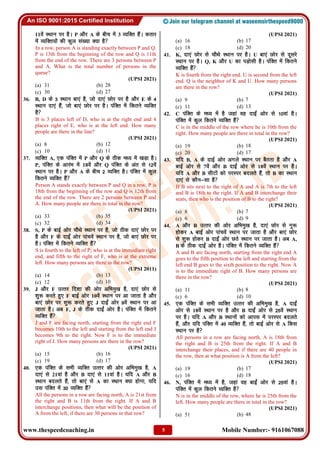 An ISO 9001:2015 Certified Institution
Join our telegram channel at waseemsirthespeed9000
11वें स्थान पर है। P और A के बीच में 3 व्यक्ति हैं। कतार
में व्यक्तियों की कुल संख्या क्या है?
In a row, person A is standing exactly between P and Q.
P is 13th from the beginning of the row and Q is 11th
from the end of the row. There are 3 persons between P
and A. What is the total number of persons in the
queue?
(UPSI 2021)
(a) 31 (b) 28
(c) 30 (d) 27
36. B, D से 3 स्थान बाएं हैं, जो दाएं छोर पर है और E से 4
स्थान दाएं हैं, जो बाएं छोर पर है। पंक्ति में कितने व्यक्ति
हैं?
B is 3 places left of D, who is at the right end and 4
places right of E, who is at the left end. How many
people are there in the line?
(UPSI 2021)
(a) 8 (b) 12
(c) 10 (d) 11
37. व्यक्ति A, एक पंक्ति में P और Q के ठीक मध्य में खड़ा है।
P, पंक्ति के आरंभ से 18वें और Q पंक्ति के अंत से 12वें
स्थान पर है। P और A के बीच 2 व्यक्ति हैं। पंक्ति में कुल
कितने व्यक्ति हैं?
Person A stands exactly between P and Q in a row. P is
18th from the beginning of the row and Q is 12th from
the end of the row. There are 2 persons between P and
A. How many people are there in total in the row?
(UPSI 2021)
(a) 33 (b) 35
(c) 32 (d) 34
38. S, P के बाईं ओर चौथे स्थान पर है, जो ठीक दाएं छोर पर
है और F के दाईं ओर पांचवे स्थान पर है, जो बाएं छोर पर
है। पंक्ति में कितने व्यक्ति हैं?
S is fourth to the left of P, who is at the immediate right
end, and fifth to the right of F, who is at the extreme
left. How many persons are there in the row?
(UPSI 2021)
(a) 14 (b) 13
(c) 12 (d) 10
39. J और F उत्तर दिशा की ओर अभिमुख हैं, दाएं छोर से
शुरू करते हुए F बाईं ओर 10वें स्थान पर आ जाता है और
बाएं छोर पर शुरू करते हुए J दाईं ओर 9वें स्थान पर आ
जाता है। अब F, J के ठीक दाईं ओर है। पंक्ति में कितने
व्यक्ति हैं?
J and F are facing north, starting from the right end F
becomes 10th to the left and starting from the left end J
becomes 9th to the right. Now F is to the immediate
right of J. How many persons are there in the row?
(UPSI 2021)
(a) 15 (b) 18
(c) 19 (d) 17
40. एक पंक्ति के सभी व्यक्ति उत्तर की ओर अभिमुख हैं, A
दाएं से 21वां है और B दाएं से 11वां है। यदि A और B
स्थान बदलते हैं, तो बाएं से A का स्थान क्या होगा, यदि
उस पंक्ति में 30 व्यक्ति हैं?
All the persons in a row are facing north, A is 21st from
the right and B is 11th from the right. If A and B
interchange positions, then what will be the position of
A from the left, if there are 30 persons in that row?
(UPSI 2021)
(a) 16 (b) 17
(c) 18 (d) 20
41. K, दाएं छोर से चौथे स्थान पर है। U बाएं छोर से दूसरे
स्थान पर है। Q, K और U का पड़ोसी है। पंक्ति में कितने
व्यक्ति हैं?
K is fourth from the right end. U is second from the left
end. Q is the neighbor of K and U. How many persons
are there in the row?
(UPSI 2021)
(a) 9 (b) 7
(c) 11 (d) 13
42. C पंक्ति के मध्य में है जहां वह दाईं ओर से 10वां है।
पंक्ति में कुल कितने व्यक्ति हैं?
C is in the middle of the row where he is 10th from the
right. How many people are there in total in the row?
(UPSI 2021)
(a) 19 (b) 18
(c) 20 (d) 17
43. यदि B, A के दाईं ओर अगले स्थान पर बैठता है और A
बाईं ओर से 7वें और B दाईं ओर से 18वें स्थान पर है।
यदि A और B सीटों को परस्पर बदलते हैं, तो B का स्थान
दाएं से कौन-सा है?
If B sits next to the right of A and A is 7th to the left
and B is 18th to the right. If A and B interchange their
seats, then who is the position of B to the right?
(UPSI 2021)
(a) 8 (b) 7
(c) 6 (d) 9
44. A और B उत्तर की ओर अभिमुख हैं, दाएं छोर से शुरू
होकर A बाईं ओर पांचवें स्थान पर आ जाता है और बाएं छोर
से शुरू होकर B दाईं ओर छठे स्थान पर आ जाता है। अब A,
B के ठीक दाईं ओर है। पंक्ति में कितने व्यक्ति हैं?
A and B are facing north, starting from the right end A
goes to the fifth position to the left and starting from the
left end B goes to the sixth position to the right. Now A
is to the immediate right of B. How many persons are
there in the row?
(UPSI 2021)
(a) 11 (b) 8
(c) 6 (d) 10
45. एक पंक्ति के सभी व्यक्ति उत्तर की अभिमुख हैं, A दाईं
ओर से 18वें स्थान पर है और B दाईं ओर से 25वें स्थान
पर है। यदि A और B स्थानों को आपस में परस्पर बदलते
हैं, और यदि पंक्ति में 40 व्यक्ति हैं, तो बाईं ओर से A किस
स्थान पर हैं?
All persons in a row are facing north, A is 18th from
the right and B is 25th from the right. If A and B
interchange their places, and if there are 40 people in
the row, then at what position is A from the left?
(UPSI 2021)
(a) 19 (b) 17
(c) 18 (d) 16
46. N, पंक्ति में मध्य में है, जहां वह बाईं ओर से 25वां है।
पंक्ति में कुल कितने व्यक्ति हैं?
N is in the middle of the row, where he is 25th from the
left. How many people are there in total in the row?
(UPSI 2021)
(a) 51 (b) 48
www.thespeedcoaching.in
5
Mobile Number:- 9161067088